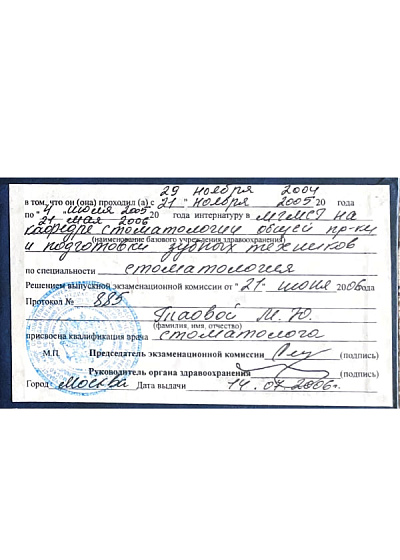 29 ноября 2004
в том, что он (она) проходил (а) с " 21 " ноября 2005 20 года
по " 4 " июля 2005 20 года интернатуру в МГМСУ на
21 мая 2006
кафедре стоматологии общей пр-ки
(наименование базового учреждения здравоохранения)
и подготовки зубных техников
по специальности стоматология
Решением выпускной экзаменационной комиссии от " 21 " июня 2006 года
Протокол № 885
М. Ю.
(фамилия, имя, отчество)
присвоена квалификация врача стоматолога
М.П. Председатель экзаменационной комиссии (подпись)
Руководитель органа здравоохранения (подпись)
Город Москва Дата выдачи 14.07.2006г.